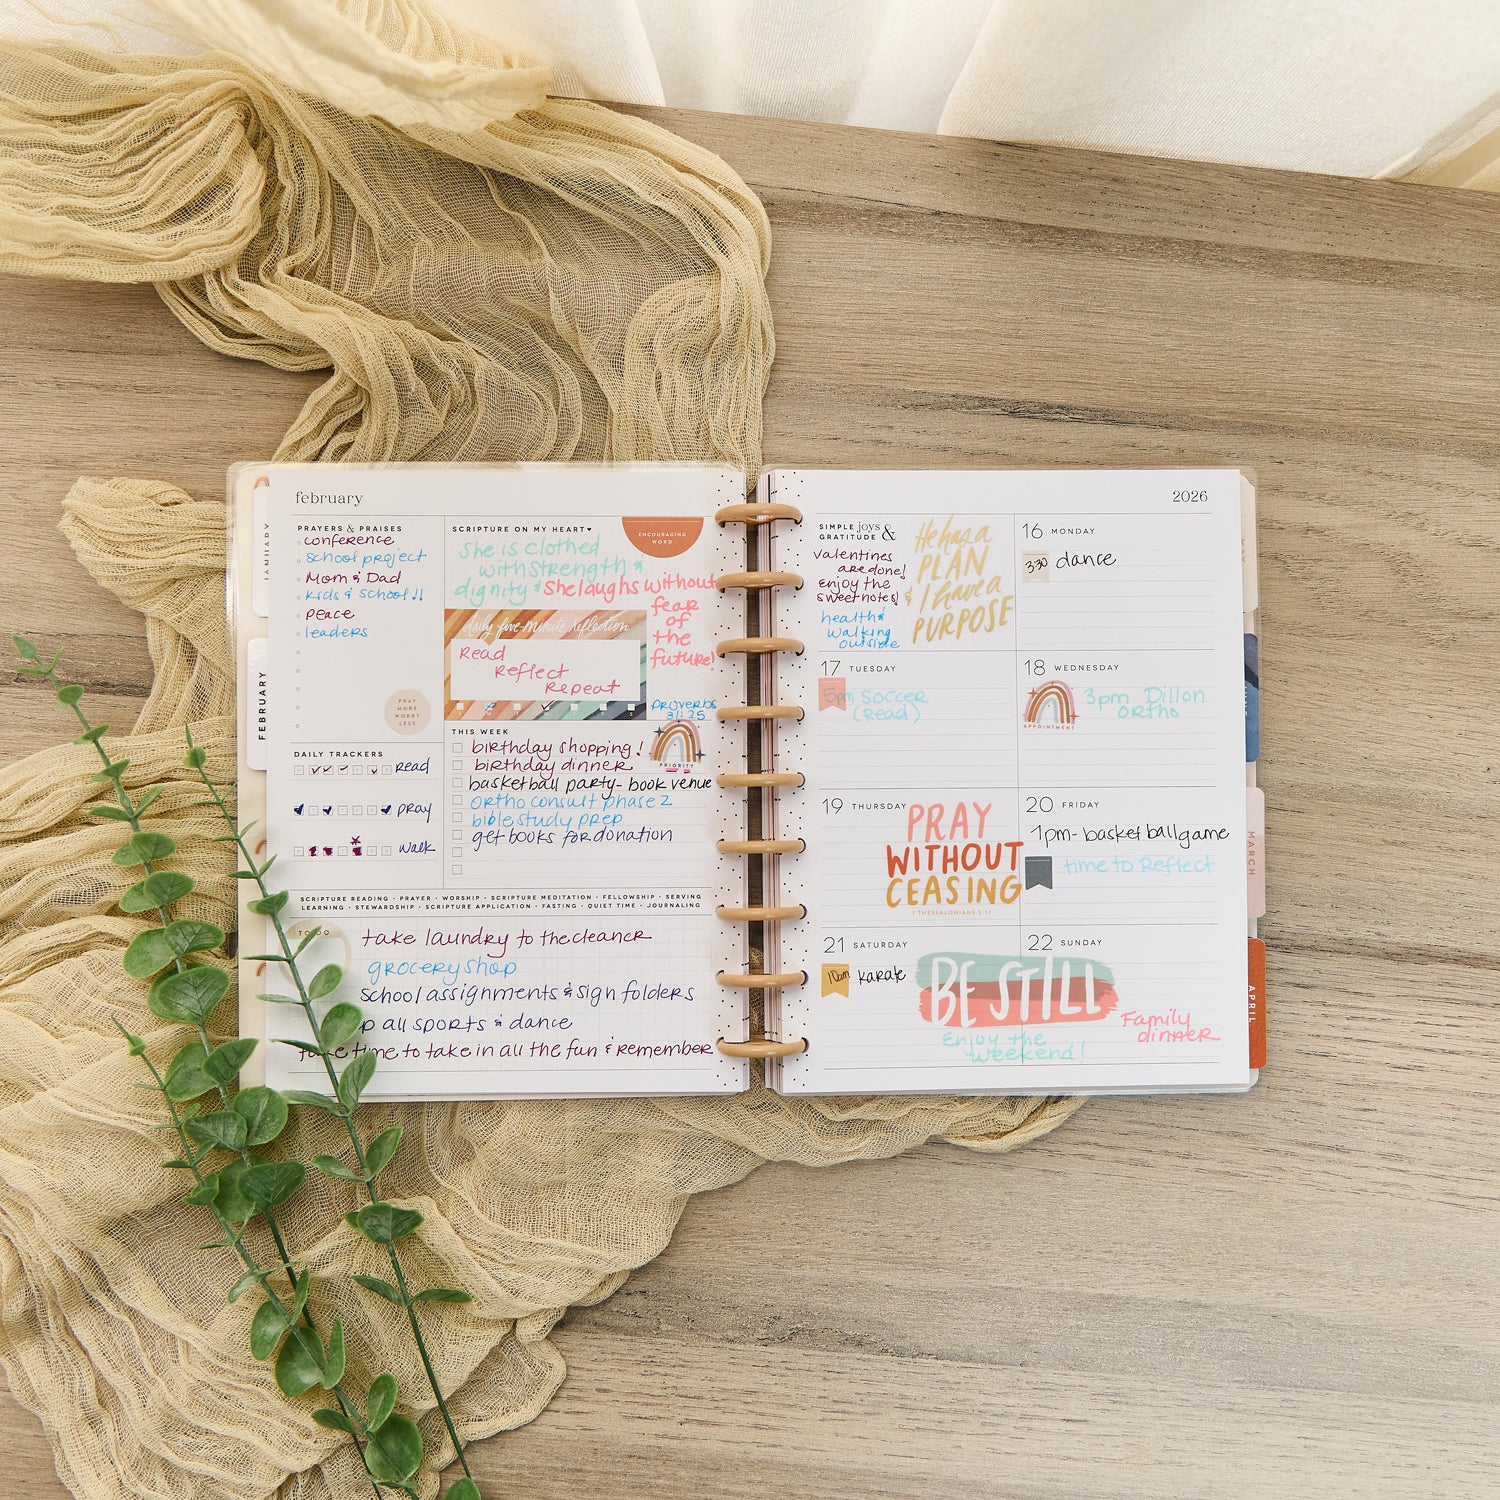 february
PRAYERS & PRAISES
conference
school project
Mom & Dad
kids & school!!
peace
leaders
PRAY
MORE
WORRY
LESS
DAILY TRACKERS
Read
pray
walk
SCRIPTURE ON MY HEART
ENCOURAGING
WORD
she is clothed
with strength &
dignity & She laughs without
fear
of
the
future!
daily five-minute reflection
Read
Reflect
Repeat
Proverbs
31:25
THIS WEEK
birthday shopping!
birthday dinner
basketball party- book venue
ortho consult phase 2
bible study prep
get books for donation
PRIORITY
SCRIPTURE READING • PRAYER • WORSHIP • SCRIPTURE MEDITATION • FELLOWSHIP • SERVING
LEARNING • STEWARDSHIP • SCRIPTURE APPLICATION • FASTING • QUIET TIME • JOURNALING
TO DO
take laundry to the cleaner
grocery shop
school assignments & sign folders
all sports & dance
time to take in all the fun & remember
JANUARY
FEBRUARY
2026
SIMPLE joys &
GRATITUDE
Valentines
are done!
enjoy the
sweet notes!
health &
walking
outside
He has a
PLAN
& I have a
PURPOSE
16 MONDAY
3:30 dance
17 TUESDAY
5pm soccer
(Read)
18 WEDNESDAY
APPOINTMENT
3pm Dillon
ortho
19 THURSDAY
PRAY
WITHOUT
CEASING
1 THESSALONIANS 5:17
20 FRIDAY
7pm- basketball game
time to Reflect
21 SATURDAY
10am karate
BE STILL
Enjoy the
weekend!
22 SUNDAY
Family
dinner
MARCH
APRIL